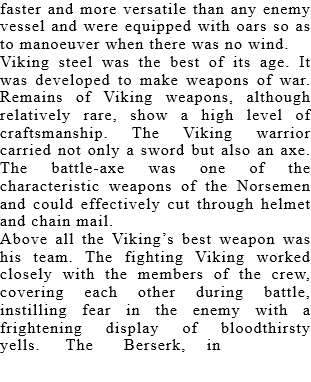 faster and more versatile than any enemy
vessel and were equipped with oars so as
to manoeuver when there was no wind.
Viking steel was the best of its age. It
was developed to make weapons of war.
Remains of Viking weapons, although
relatively rare, show a high level of
craftsmanship. The Viking warrior
carried not only a sword but also an axe.
The battle-axe was one of the
characteristic weapons of the Norsemen
and could effectively cut through helmet
and chain mail.
Above all the Viking’s best weapon was
his team. The fighting Viking worked
closely with the members of the crew,
covering each other during battle,
instilling fear in the enemy with a
frightening display of bloodthirsty
yells. The Berserk, in